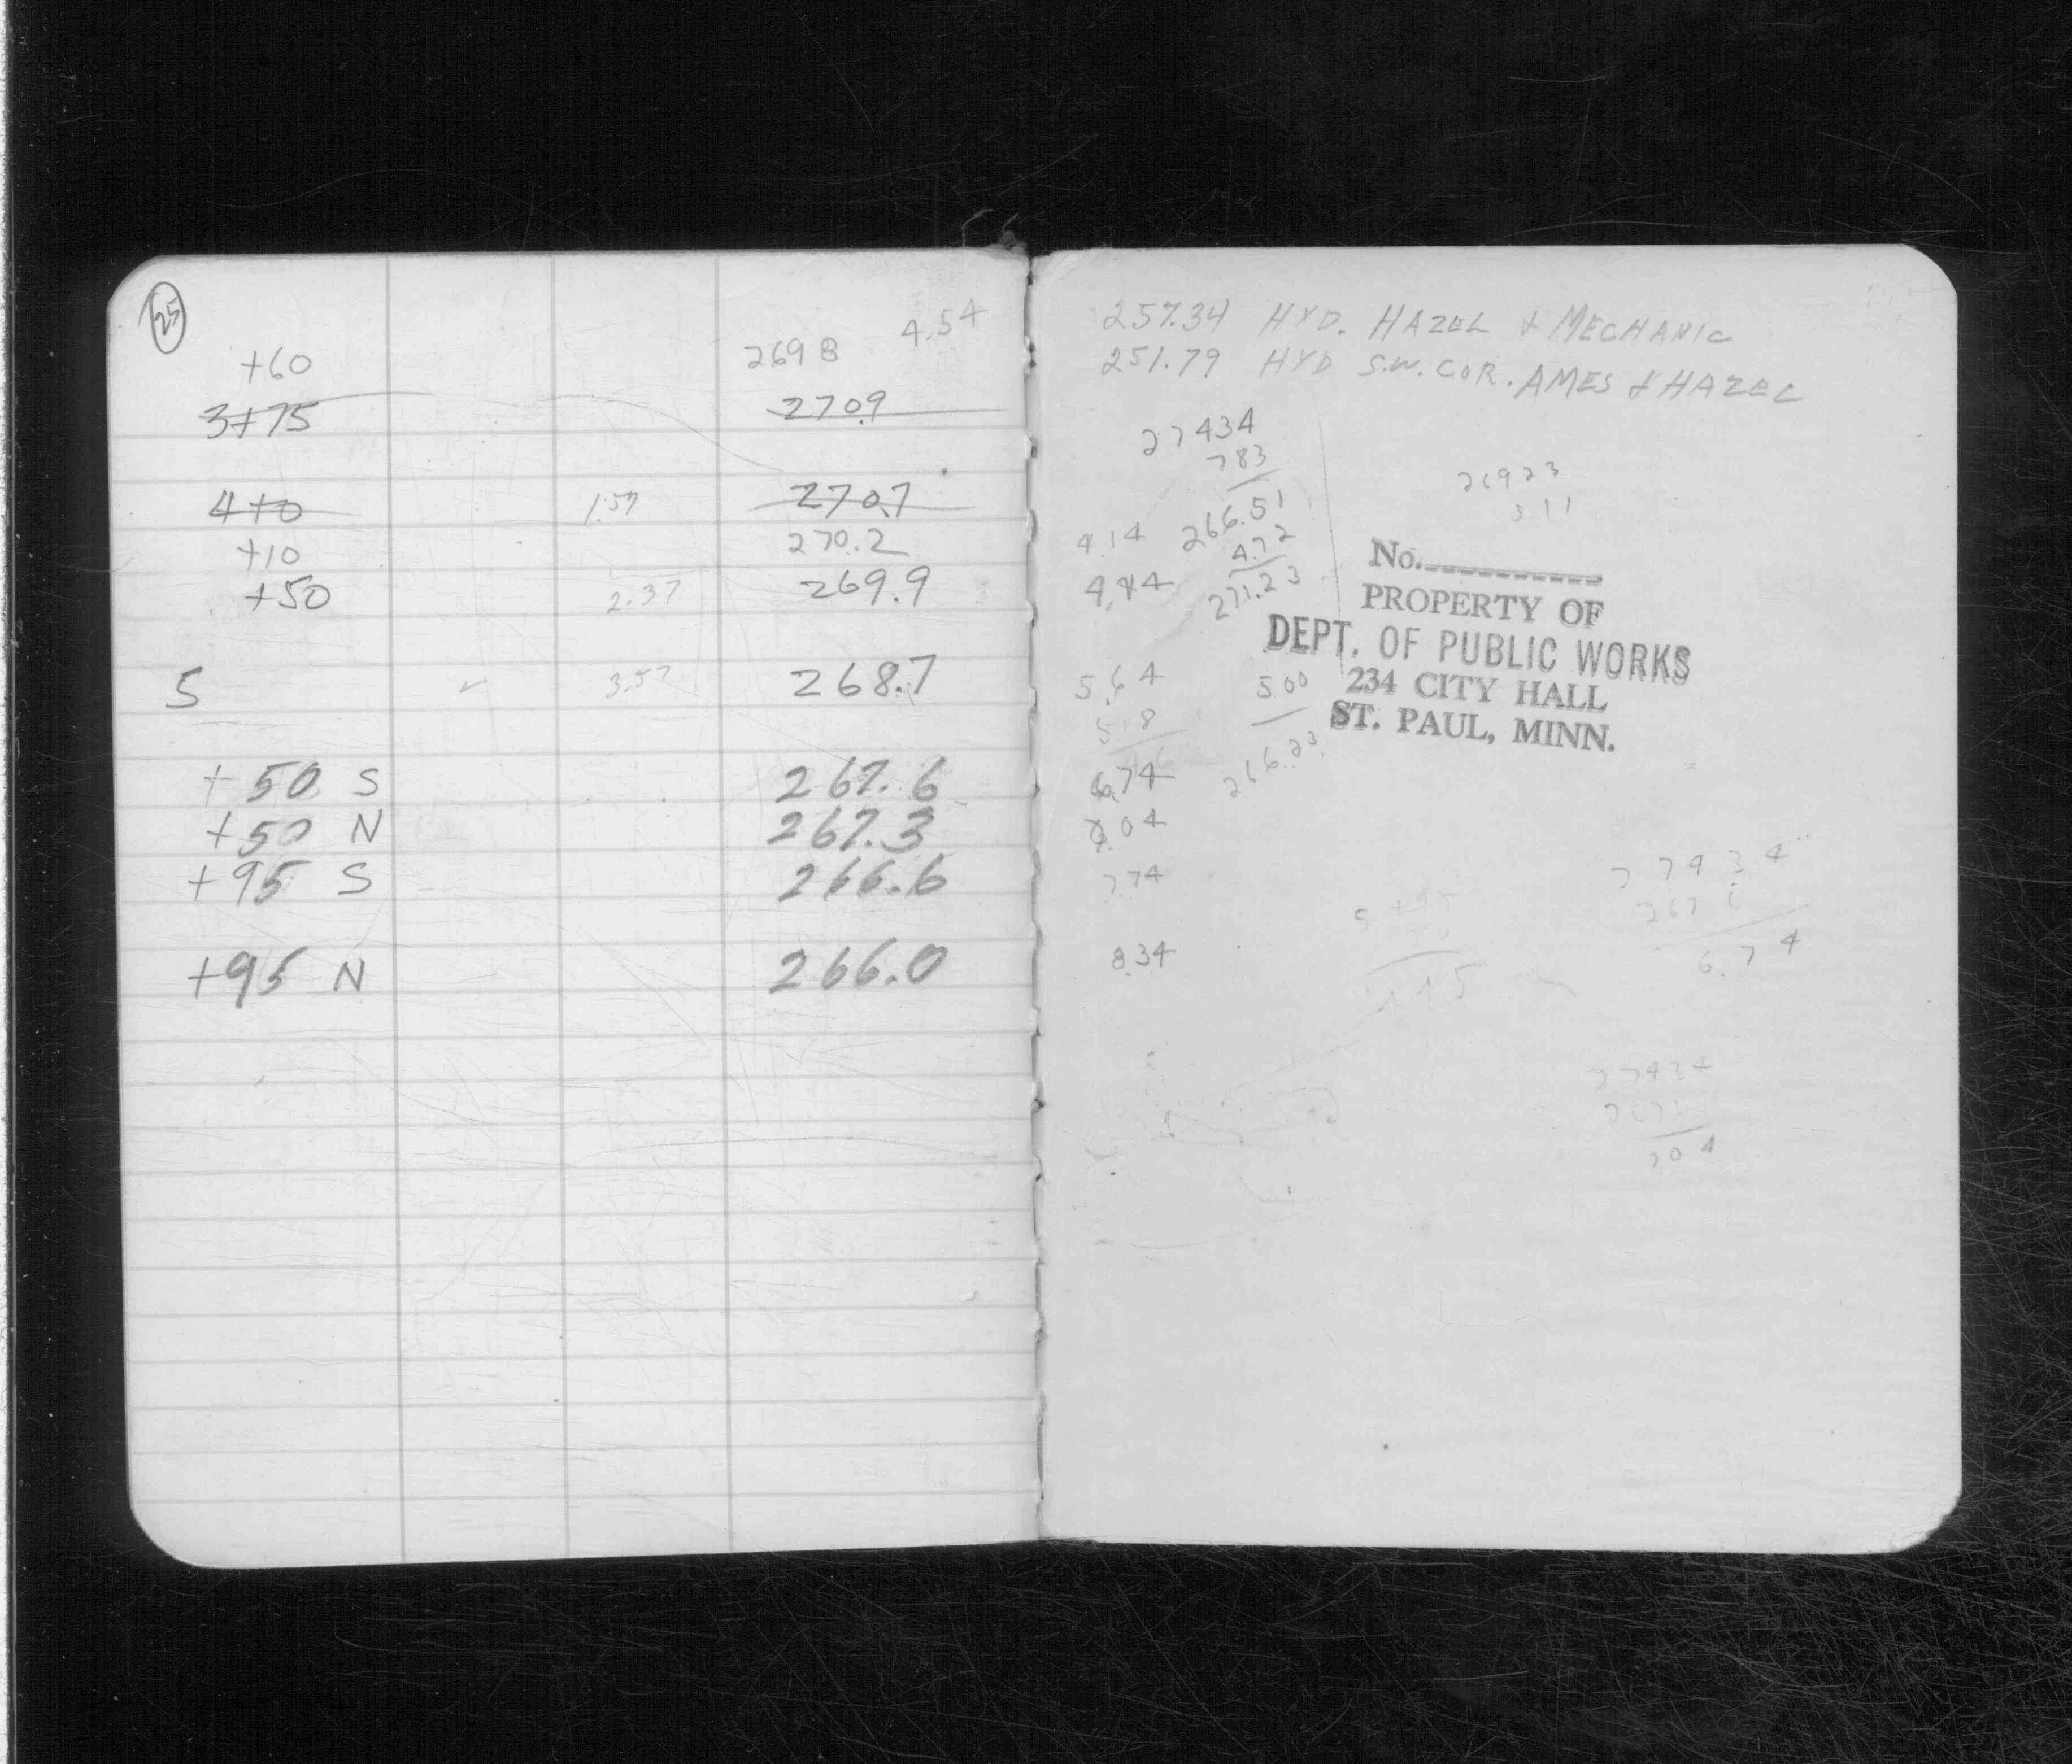 25
+60 2698 4.54
3+75 270.9
4+0 1.57 270.7
+10 270.2
+50 2.37 269.9
5 3.57 268.7
+50 S 267.6
+50 N 267.3
+95 S 266.6
+95 N 266.0
257.34 HYD. HAZEL & MECHANIC
251.79 HYD S.W. COR. AMES & HAZEL
27434
783
266.51
4.72
271.23
500
266.23
26923
311
4.14
4.44
5.64
5.8
6.74
7.04
7.74
8.34
No.
PROPERTY OF
DEPT. OF PUBLIC WORKS
234 CITY HALL
ST. PAUL, MINN.
27434
267 6
6.74
27434
704